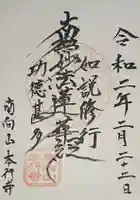 令和二年二月二十二日
如説修行
南無妙法蓮華経
功徳甚多
南向山本行寺